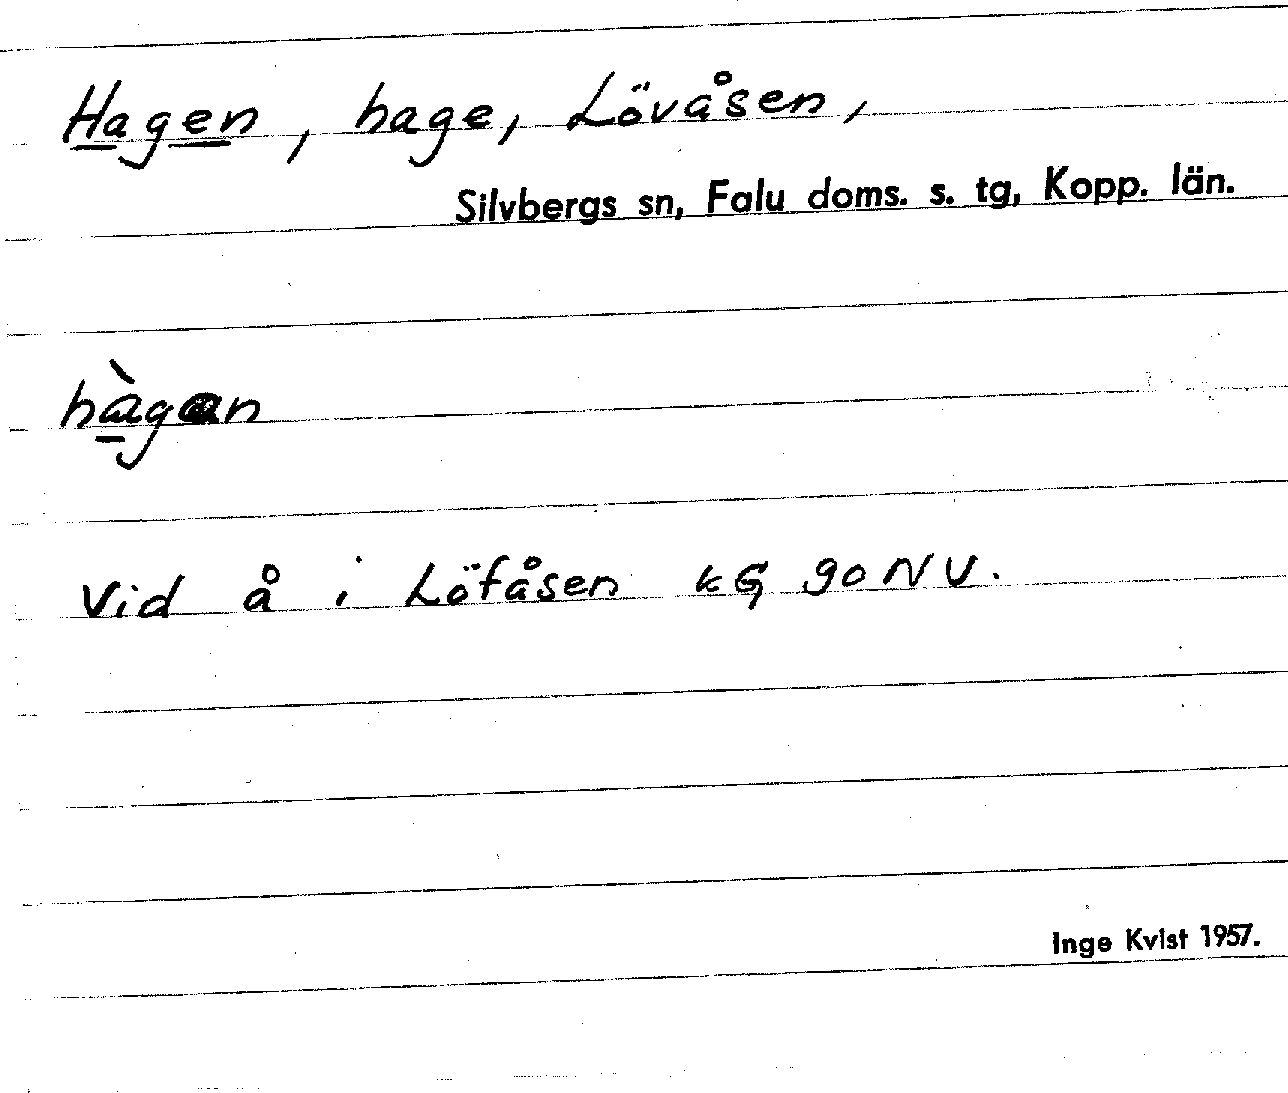 Hagen, hage, Lövåsen,
Silvbergs sn, Falu doms. s. tg, Kopp. län.
hàgan
Vid å i Löfåsen kG 90 NV.
Inge Kvist 1957.